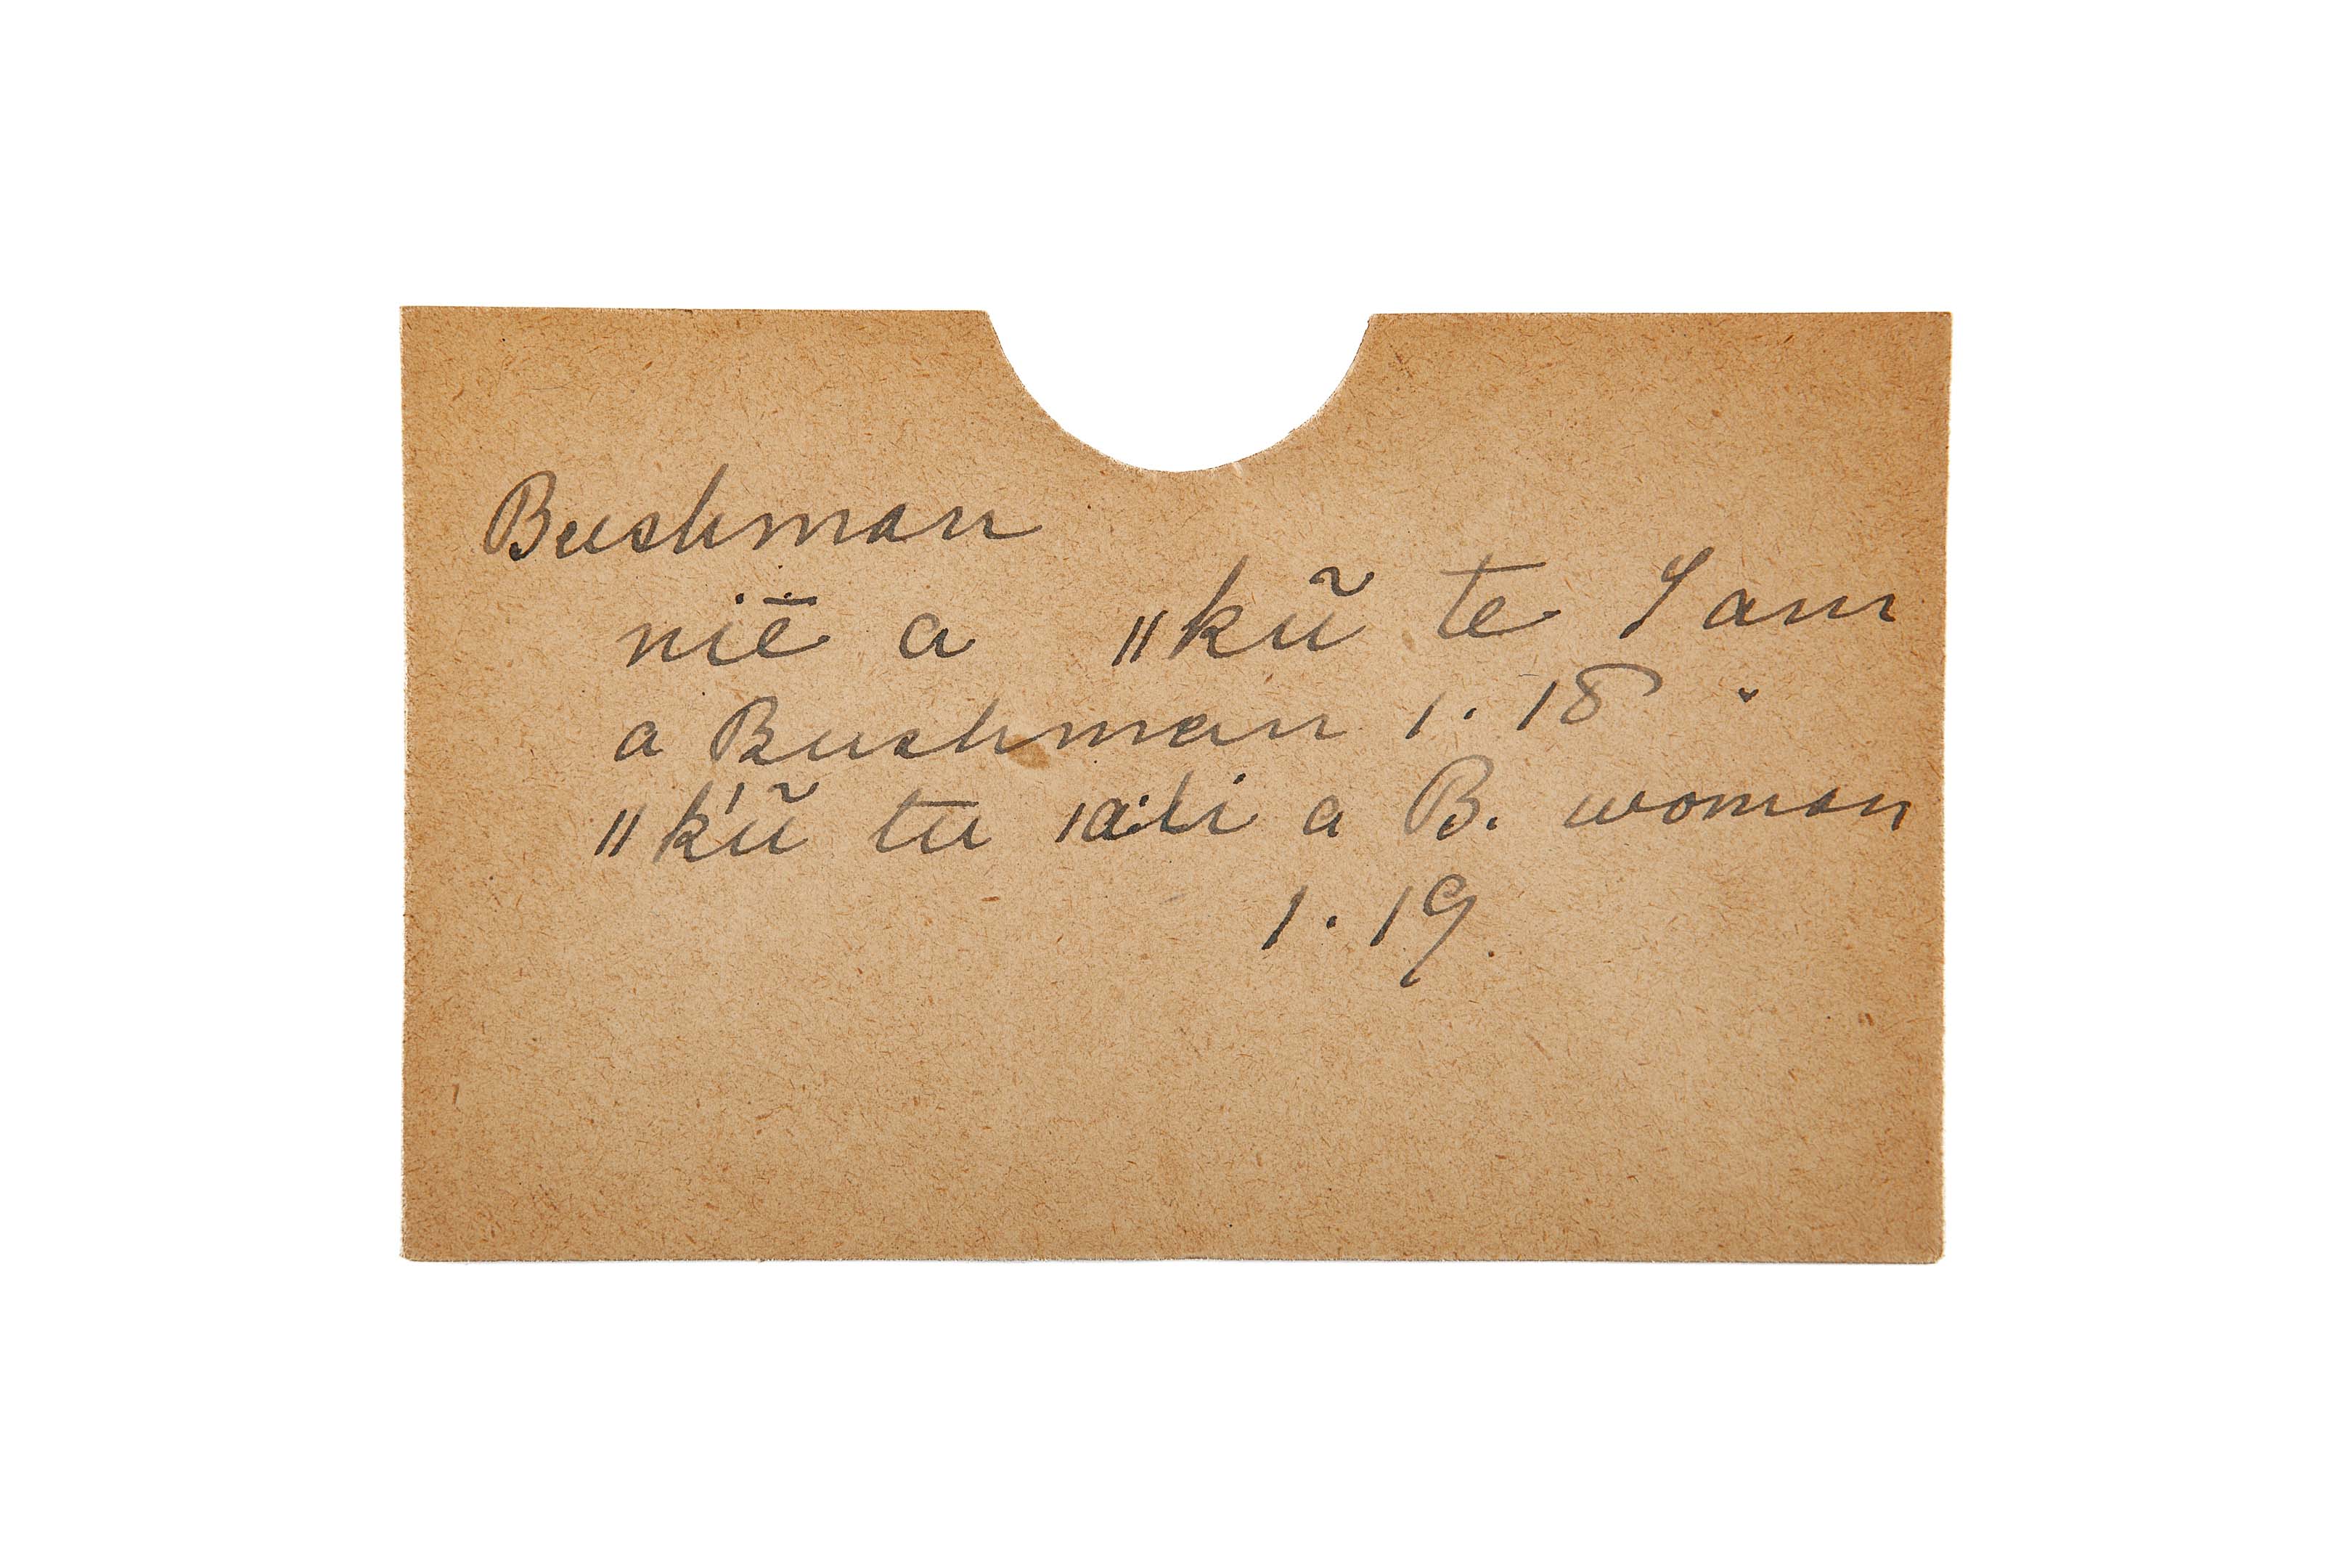 Bushman
niē a ǁkũ te I am
a Bushman 1. 18
ǁk'ũ tu ǀaiti a B. woman
1. 19.